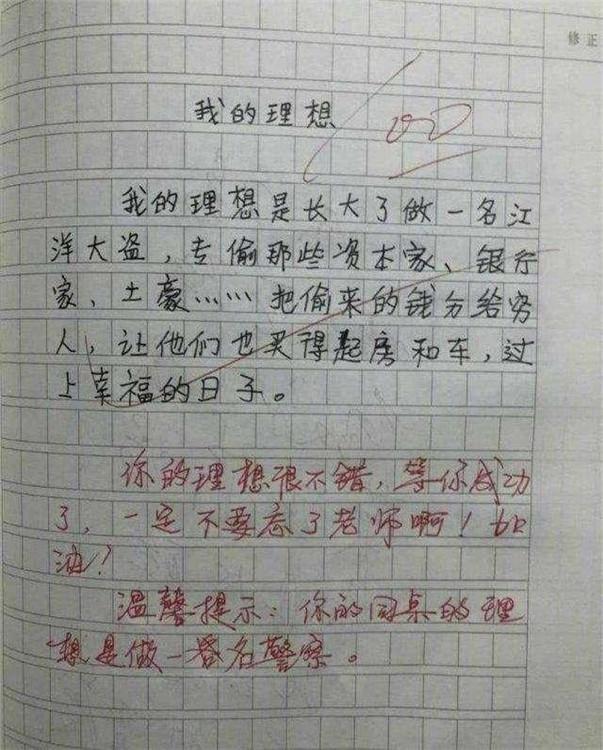 修正
我的理想
100
我的理想是长大了做一名江
洋大盗，专偷那些资本家、银行
家、土豪……把偷来的钱分给穷
人，让他们也买得起房和车，过
上幸福的日子。
你的理想很不错，等你成功
了，一定不要忘了老师啊！加
油！
温馨提示：你的同桌的理
想是做一名警察。